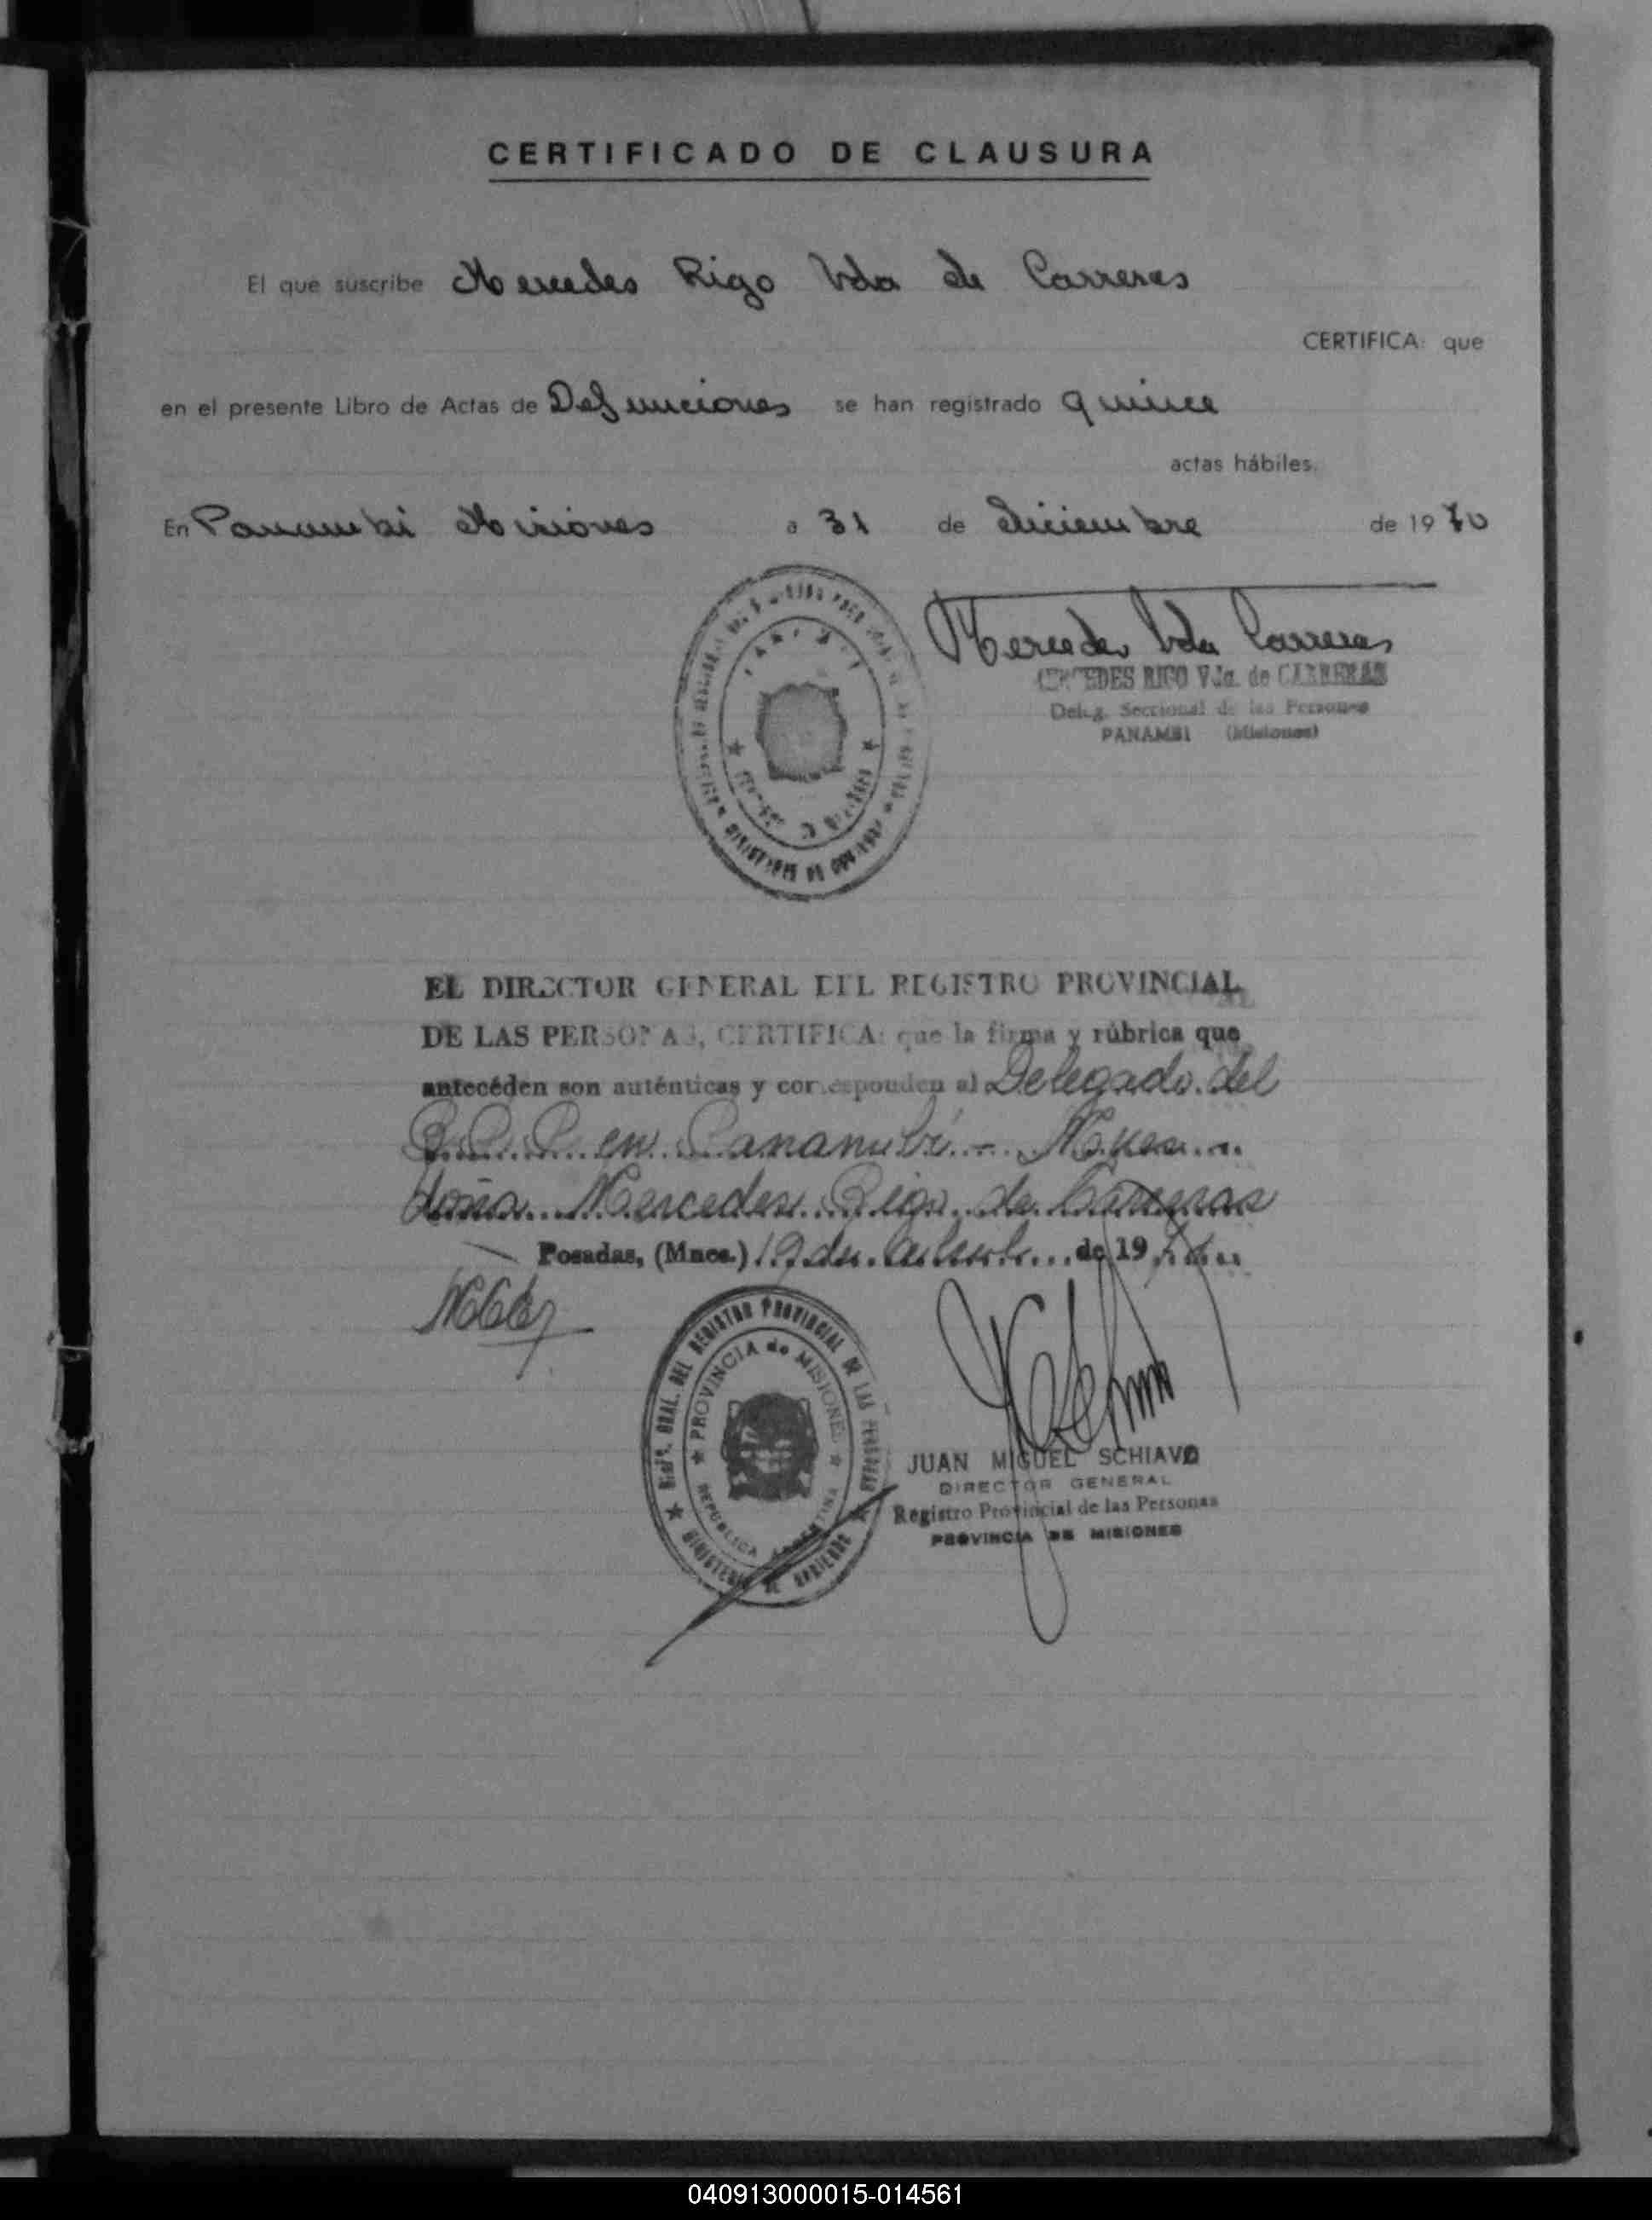 CERTIFICADO DE CLAUSURA
El que suscribe Mercedes Rigo Vda de Carreras
CERTIFICA: que
en el presente Libro de Actas de Defunciones se han registrado quince
actas hábiles.
En Panambi Misiones a 31 de Diciembre de 1970
Mercedes Vda Carreras
MERCEDES RIGO Vda. de CARRERAS
Deleg. Seccional de las Personas
PANAMBI (Misiones)
EL DIRECTOR GENERAL DEL REGISTRO PROVINCIAL
DE LAS PERSONAS, CERTIFICA: que la firma y rúbrica que
antecéden son auténticas y corresponden al Delegado del
R.P.P. en Panambí -
doña Mercedes Rigo de Carreras
Posadas, (Mnes.) 19 de de 19
DIR. GRAL. DEL REGISTRO PROVINCIAL DE LAS PERSONAS
PROVINCIA de MISIONES
REPUBLICA ARGENTINA
MINISTERIO DE GOBIERNO
JUAN MIGUEL SCHIAVO
DIRECTOR GENERAL
Registro Provincial de las Personas
PROVINCIA DE MISIONES
040913000015-014561